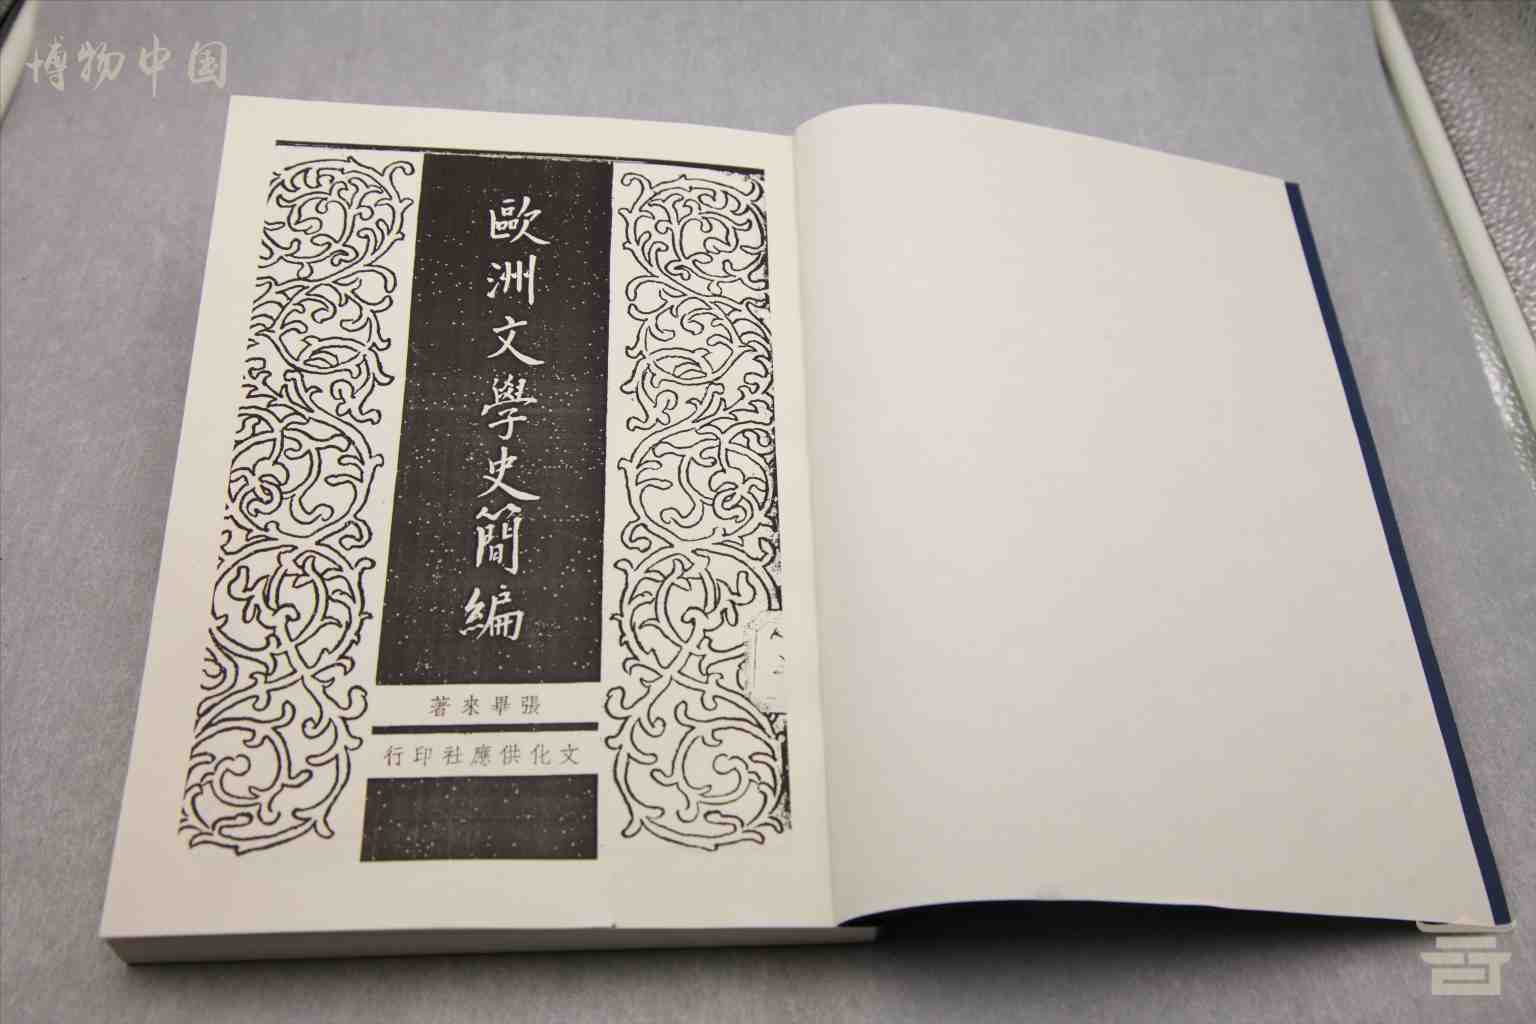 博物中国
歐洲文學史簡編
張畢來著
文化供應社印行